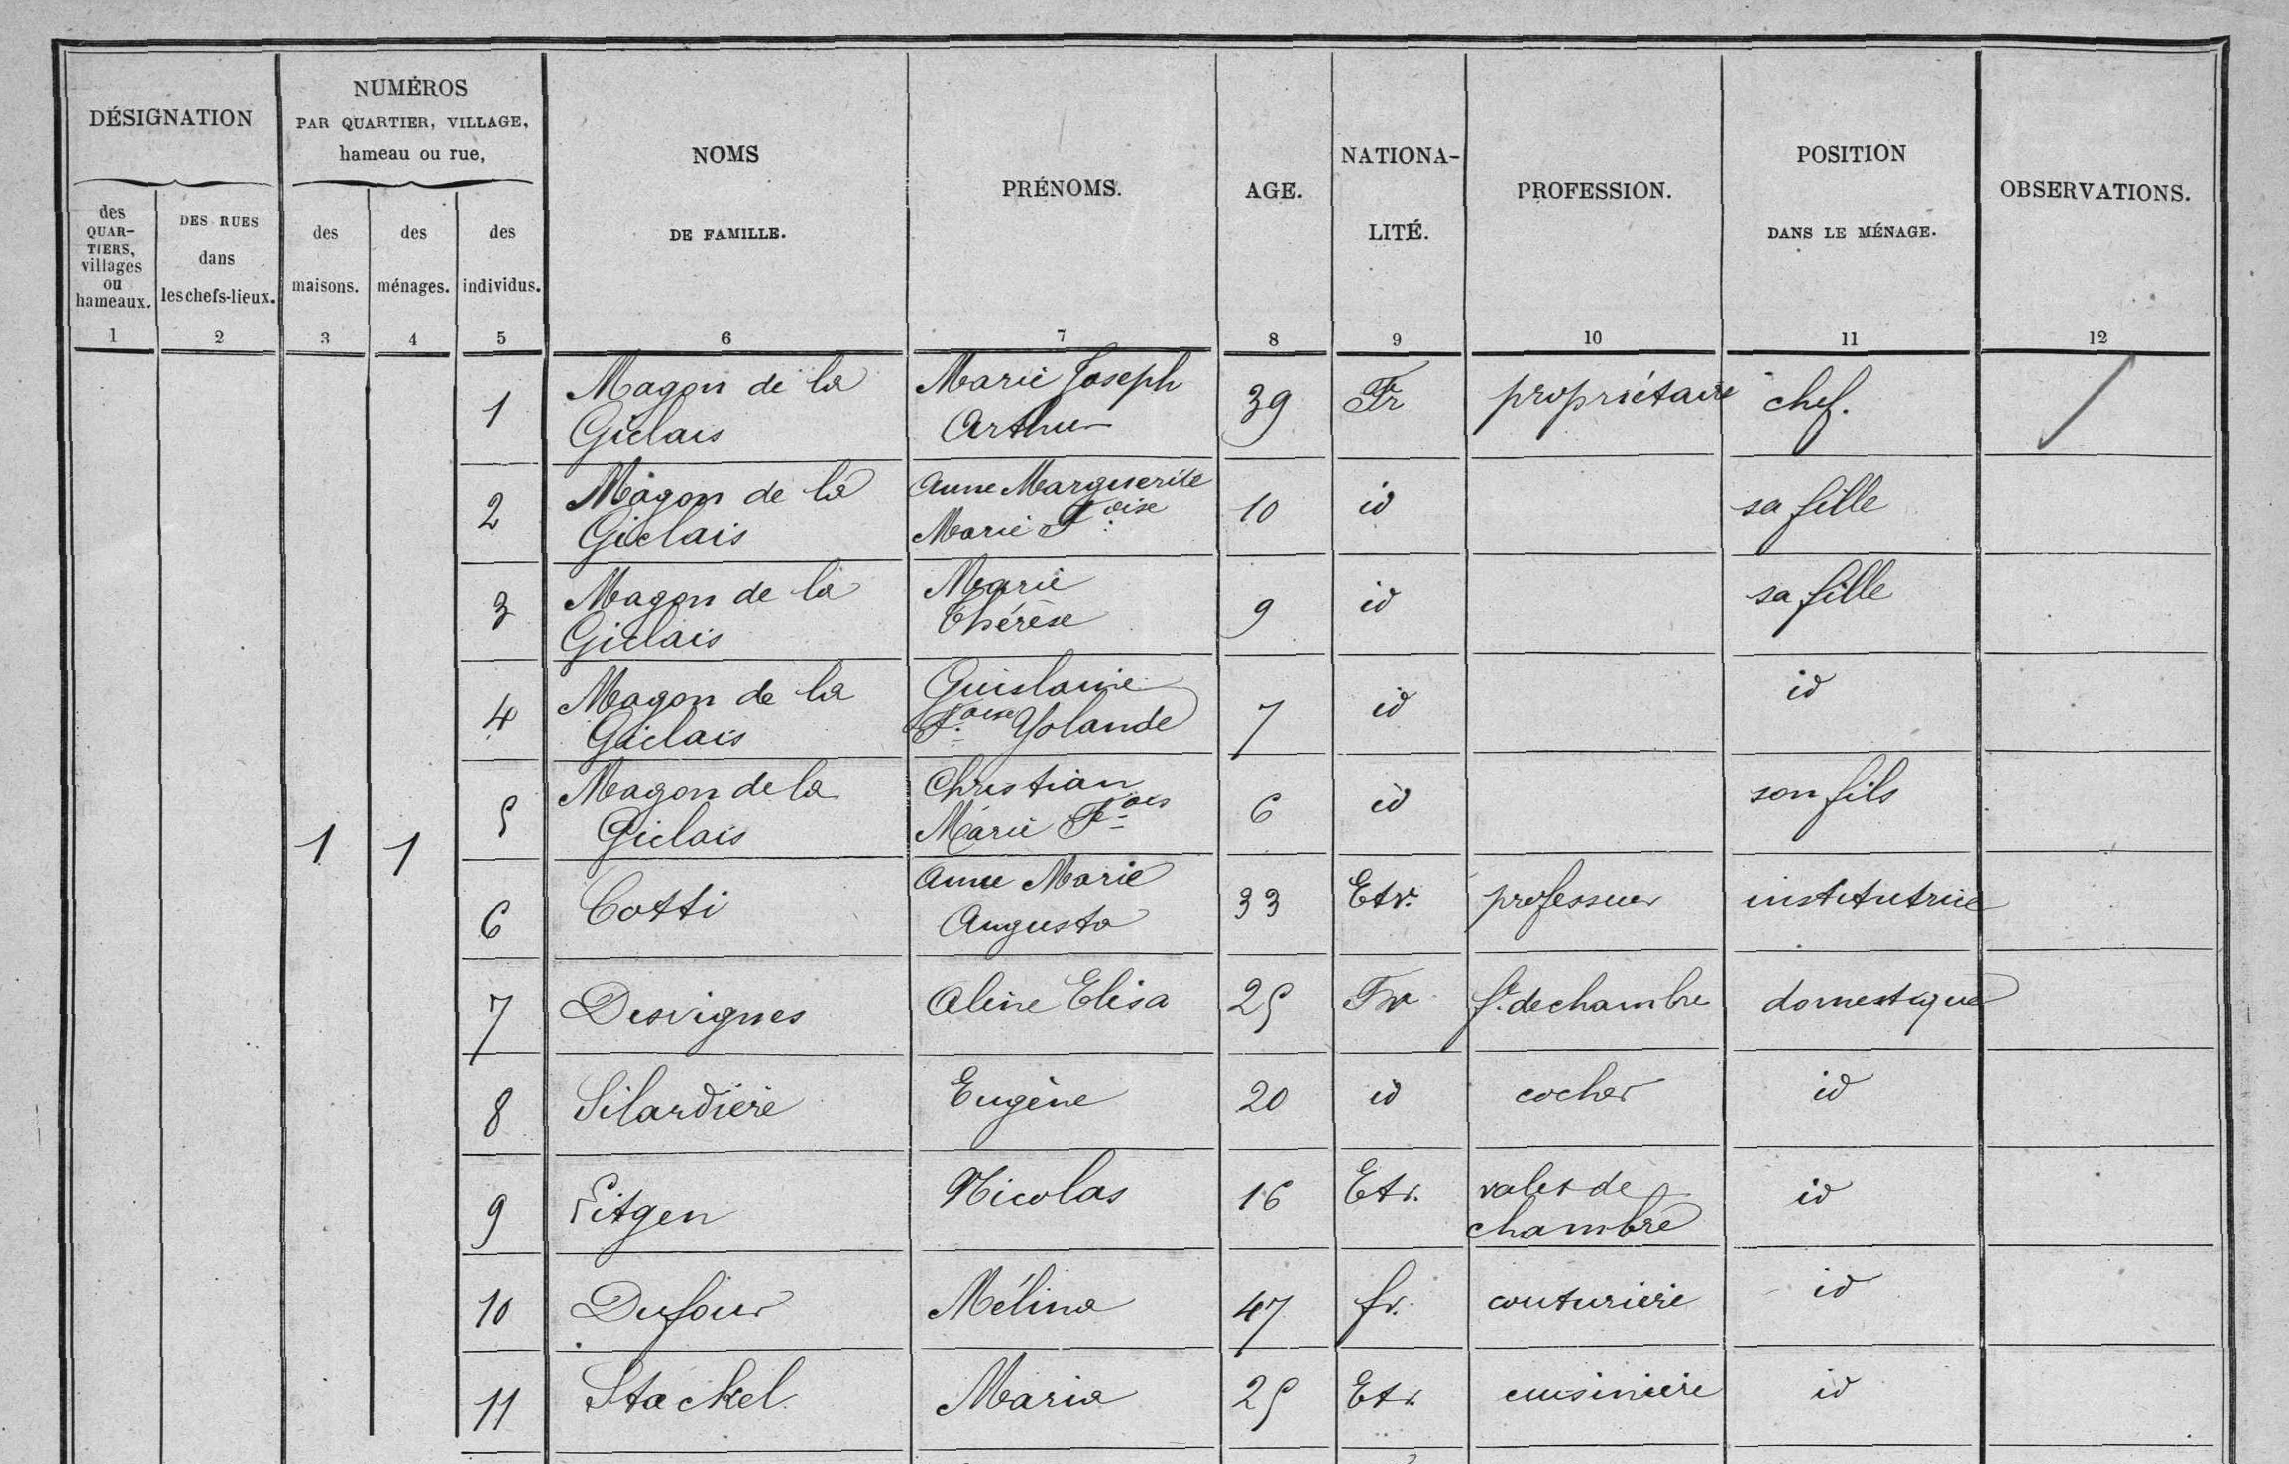 DÉSIGNATION
NUMÉROS
PAR QUARTIER, VILLAGE,
hameau ou rue,
NOMS
DE FAMILLE.
PRÉNOMS.
AGE.
NATIONA-
LITÉ.
PROFESSION.
POSITION
DANS LE MÉNAGE.
OBSERVATIONS.
des
QUAR-
TIERS,
villages
ou
hameaux.
DES RUES
dans
les chefs-lieux.
des
maisons.
des
ménages.
des
individus.
1 2 3 4 5 6 7 8 9 10 11 12
1 1
1 Magon de la
Giclais
Marie Joseph
Arthur
39 Fr propriétaire chef.
2 Magon de la
Giclais
Anne Marguerite
Marie F.oise
10 id sa fille
3 Magon de la
Giclais
Marie
Thérèse
9 id sa fille
4 Magon de la
Giclais
Guislaine
F.oise Yolande
7 id id
5 Magon de la
Giclais
Christian
Marie Fois
6 id son fils
6 Cotti
Anne Marie
Augusta
33 Etr. professeur institutrice
7 Desvignes Aline Elisa 25 Fr f. de chambre domestique
8 Silardière Eugène 20 id cocher id
9 Eitgen Nicolas 16 Etr. valet de
chambre
id
10 Dufour Mélina 47 fr. couturière id
11 Stackel Maria 25 Etr. cuisinière id